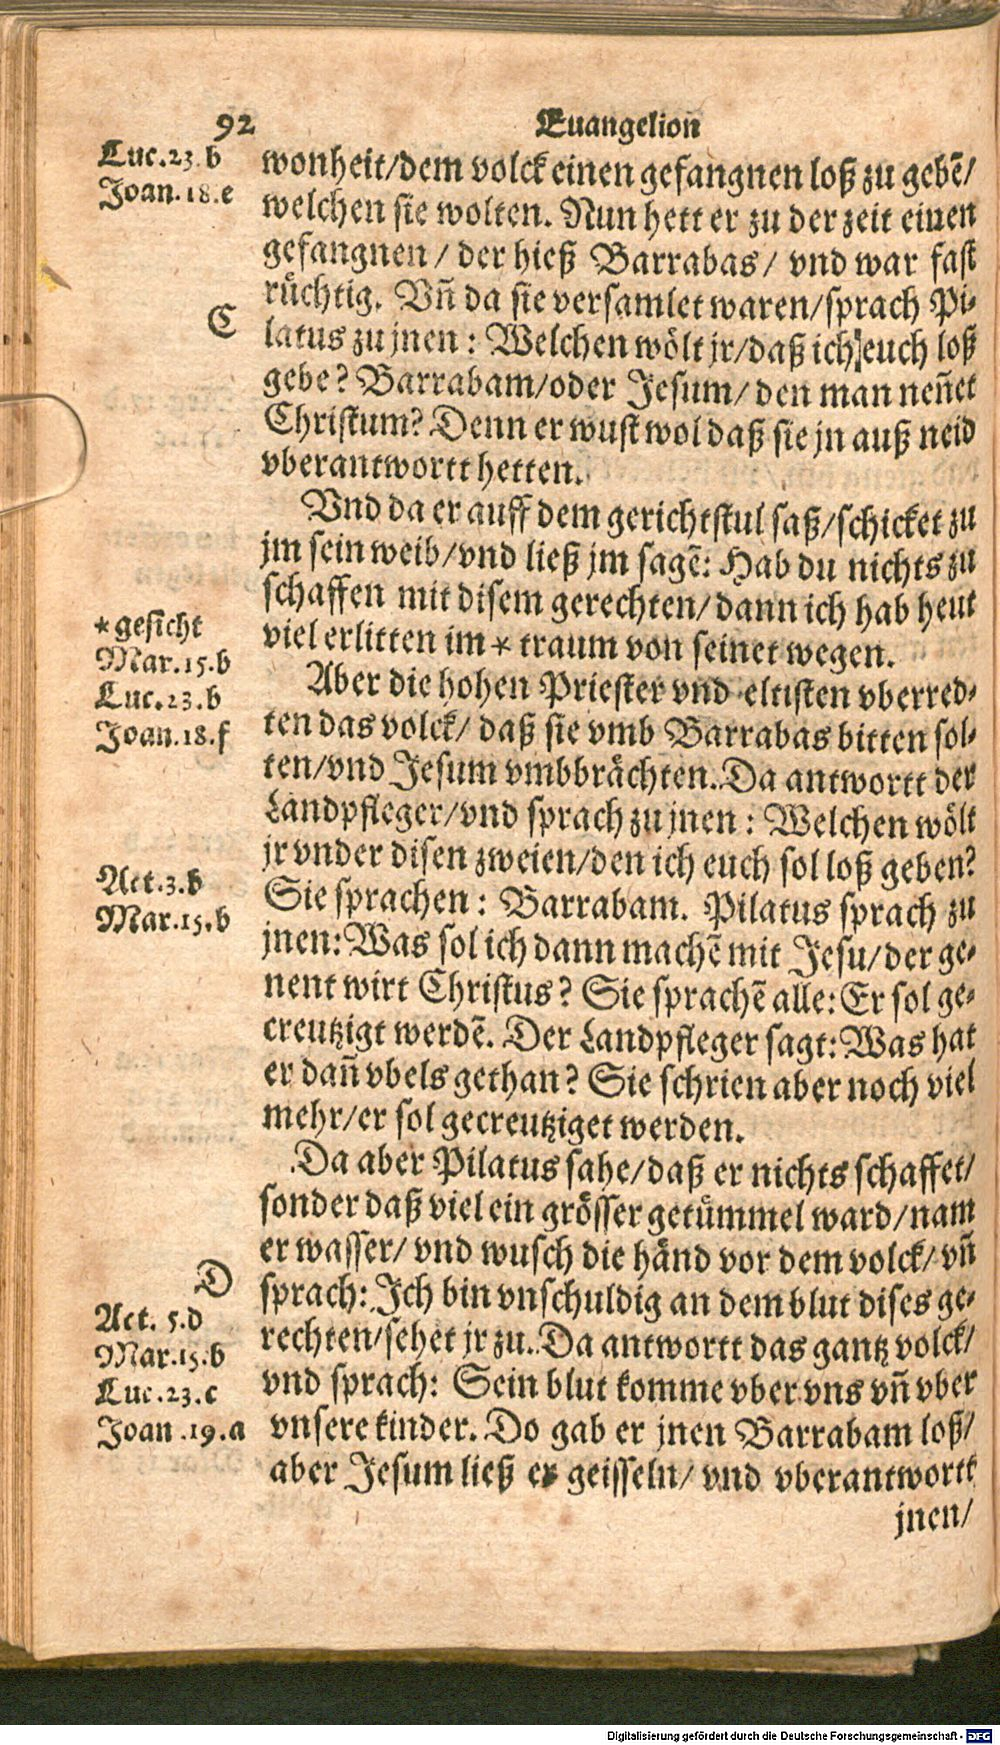 92
Euangelion̄
Luc.23.b
Joan.18.e
wonheit/dem volck einen gefangnen loß zu gebē/
welchen sie wolten. Nun hett er zu der zeit einen
gefangnen / der hieß Barrabas/ vnd war fast
rüchtig. Vn̄ da sie versamlet waren/sprach Pi-
C
latus zu jnen : Welchen wölt jr/daß ich euch loß
gebe? Barrabam/oder Jesum/ den man nen̄et
Christum? Denn er wust wol daß sie jn auß neid
vberantwortt hetten.
Vnd da er auff dem gerichtstul saß/schicket zu
jm sein weib/vnd ließ jm sagē: Hab du nichts zu
schaffen mit disem gerechten/dann ich hab heut
viel erlitten im * traum von seinet wegen.
*gesicht
Mar.15.b
Luc.23.b
Joan.18.f
Aber die hohen Priester vnd eltisten vberred-
ten das volck/ daß sie vmb Barrabas bitten sol-
ten/vnd Jesum vmbbrächten. Da antwortt der
Landpfleger/vnd sprach zu jnen : Welchen wölt
jr vnder disen zweien/den ich euch sol loß geben?
Act.3.b
Mar.15.b
Sie sprachen : Barrabam. Pilatus sprach zu
jnen: Was sol ich dann machē mit Jesu/der ge-
nent wirt Christus? Sie sprachē alle: Er sol ge-
creutzigt werdē. Der Landpfleger sagt: Was hat
er dan̄ vbels gethan? Sie schrien aber noch viel
mehr/er sol gecreutziget werden.
Da aber Pilatus sahe/daß er nichts schaffet/
sonder daß viel ein grösser getümmel ward/nam
er wasser/ vnd wusch die händ vor dem volck/ vn̄
D
sprach: Ich bin vnschuldig an dem blut dises ge-
Act. 5.d
Mar.15.b
Luc.23.c
Joan.19.a
rechten/sehet jr zu. Da antwortt das gantz volck/
vnd sprach: Sein blut komme vber vns vn̄ vber
vnsere kinder. Do gab er jnen Barrabam loß/
aber Jesum ließ er geisseln/ vnd vberantwortt
jnen/
Digitalisierung gefördert durch die Deutsche Forschungsgemeinschaft - DFG